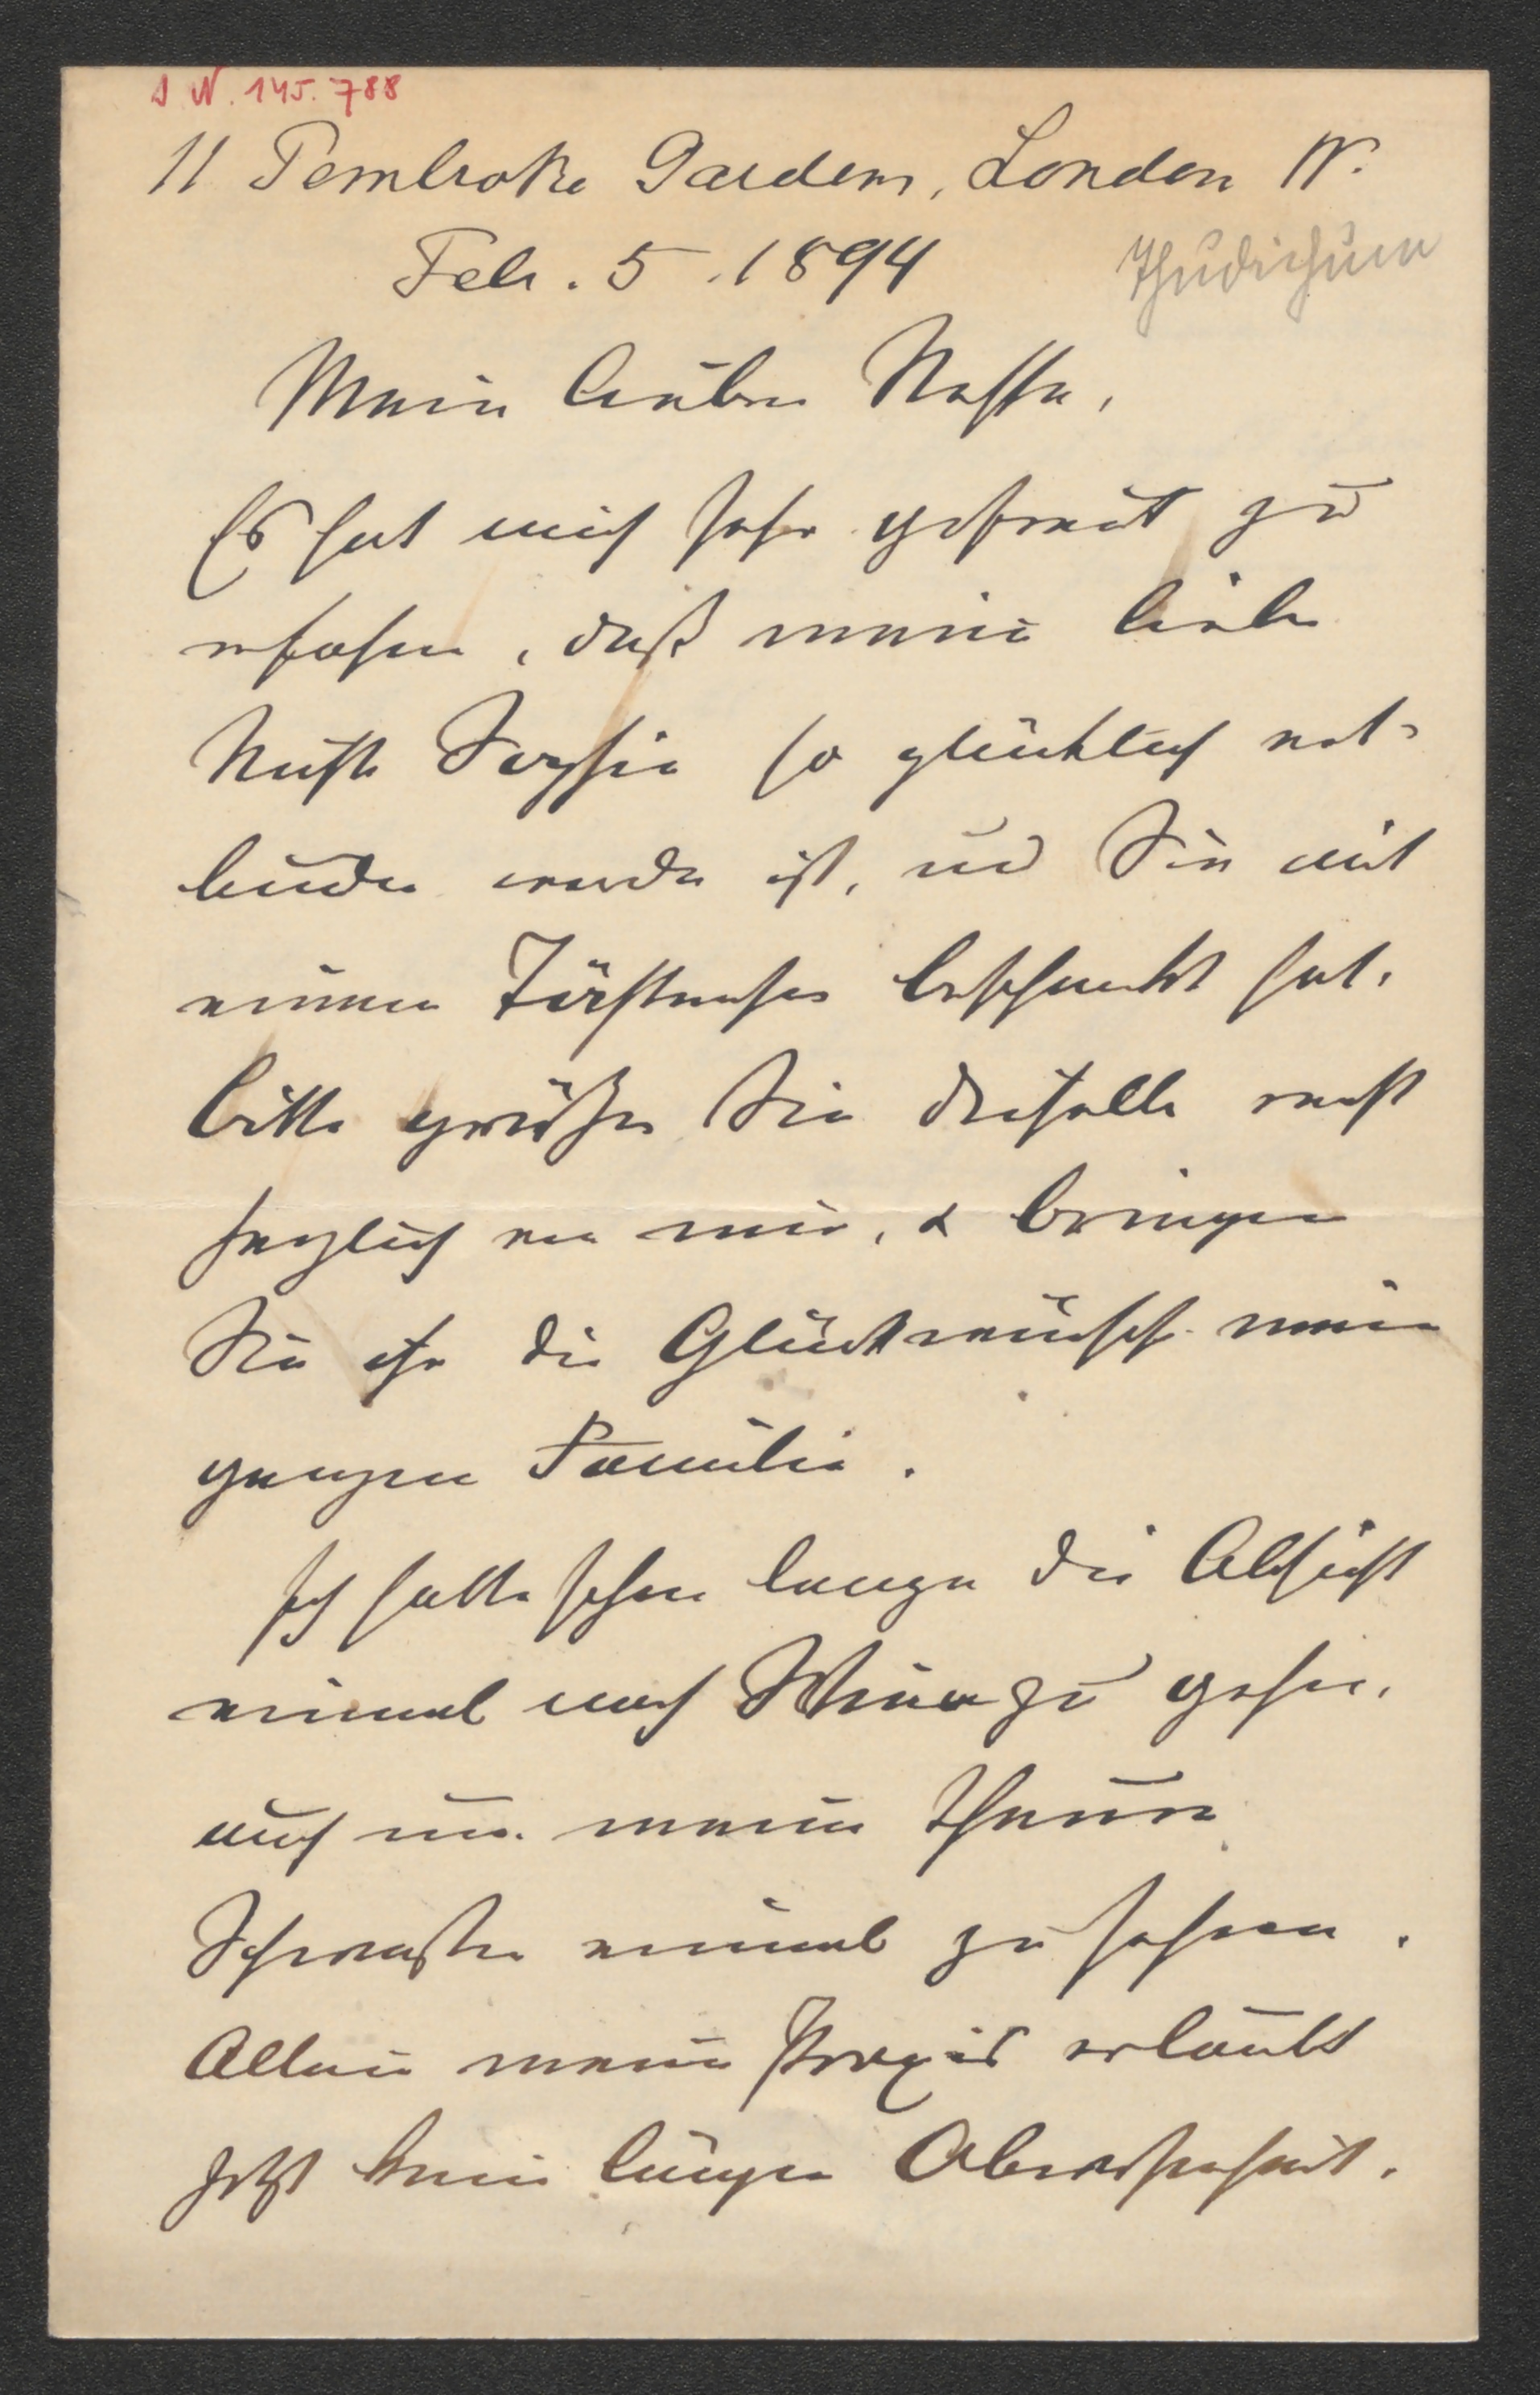 I. N. 145.788
11 Pembroke Gardens, London W.
Feb. 5. 1894
Thudichum
Mein lieber Neffe,
Es hat mich sehr gefreut zu
erfahren, daß meine liebe
Nichte Sophie so glücklich ent-
bunden worden ist, und Sie mit
einem Töchterchen beschenkt hat.
Bitte grüßen Sie dieselbe recht
herzlich von mir, & bringen
Sie ihr die Glückwünsche meiner
ganzen Familie.
Ich hatte schon lange die Absicht
einmal nach Wien zu gehen,
auch um meine theure
Schwester einmal zu sehen.
Allein meine Praxis erlaubt
jetzt keine längere Abwesenheit.